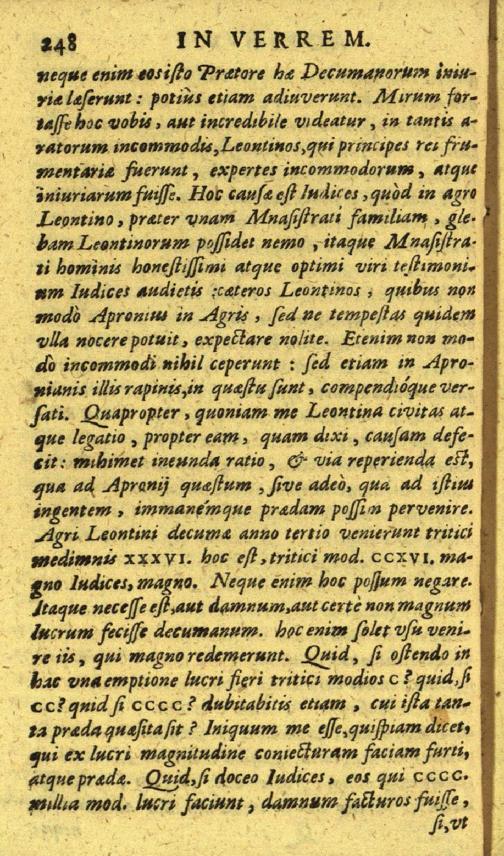 248 IN VERREM.
neque enim eos isto Prætore hæ Decumanorum iniu-
riæ læserunt: potiùs etiam adiuverunt. Mirum for-
tasse hoc vobis, aut incredibile videatur, in tantis a-
ratorum incommodis, Leontinos, qui principes rei fru-
mentariæ fuerunt, expertes incommodorum, atque
iniuriarum fuisse. Hoc causæ est Iudices, quòd in agro
Leontino, præter vnam Mnasistrati familiam, gle-
bam Leontinorum possidet nemo, itaque Mnasistra-
ti hominis honestissimi atque optimi viri testimoni-
um Iudices audietis: cæteros Leontinos, quibus non
modò Apronius in Agris, sed ne tempestas quidem
vlla nocere potuit, expectare nolite. Etenim non mo-
dò incommodi nihil ceperunt: sed etiam in Apro-
nianis illis rapinis, in quæstu sunt, compendióque ver-
sati. Quapropter, quoniam me Leontina civitas at-
que legatio, propter eam, quam dixi, causam defe-
cit: mihimet ineunda ratio, & via reperienda est,
qua ad Apronij quæstum, sive adeò, qua ad istius
ingentem, immanémque prædam possim pervenire.
Agri Leontini decumæ anno tertio venierunt tritici
medimnis XXXVI. hoc est, tritici mod. CCXVI. ma-
gno Iudices, magno. Neque enim hoc possum negare.
Itaque necesse est, aut damnum, aut certè non magnum
lucrum fecisse decumanum. hoc enim solet vsu veni-
re iis, qui magno redemerunt. Quid, si ostendo in
hac vna emptione lucri fieri tritici modios C? quid, si
CC? quid si CCCC? dubitabitis etiam, cui ista tan-
ta præda quæsita sit? Iniquum me esse, quispiam dicet,
qui ex lucri magnitudine coniecturam faciam furti,
atque prædæ. Quid, si doceo Iudices, eos qui CCCC.
millia mod. lucri faciunt, damnum facturos fuisse,
si, vt